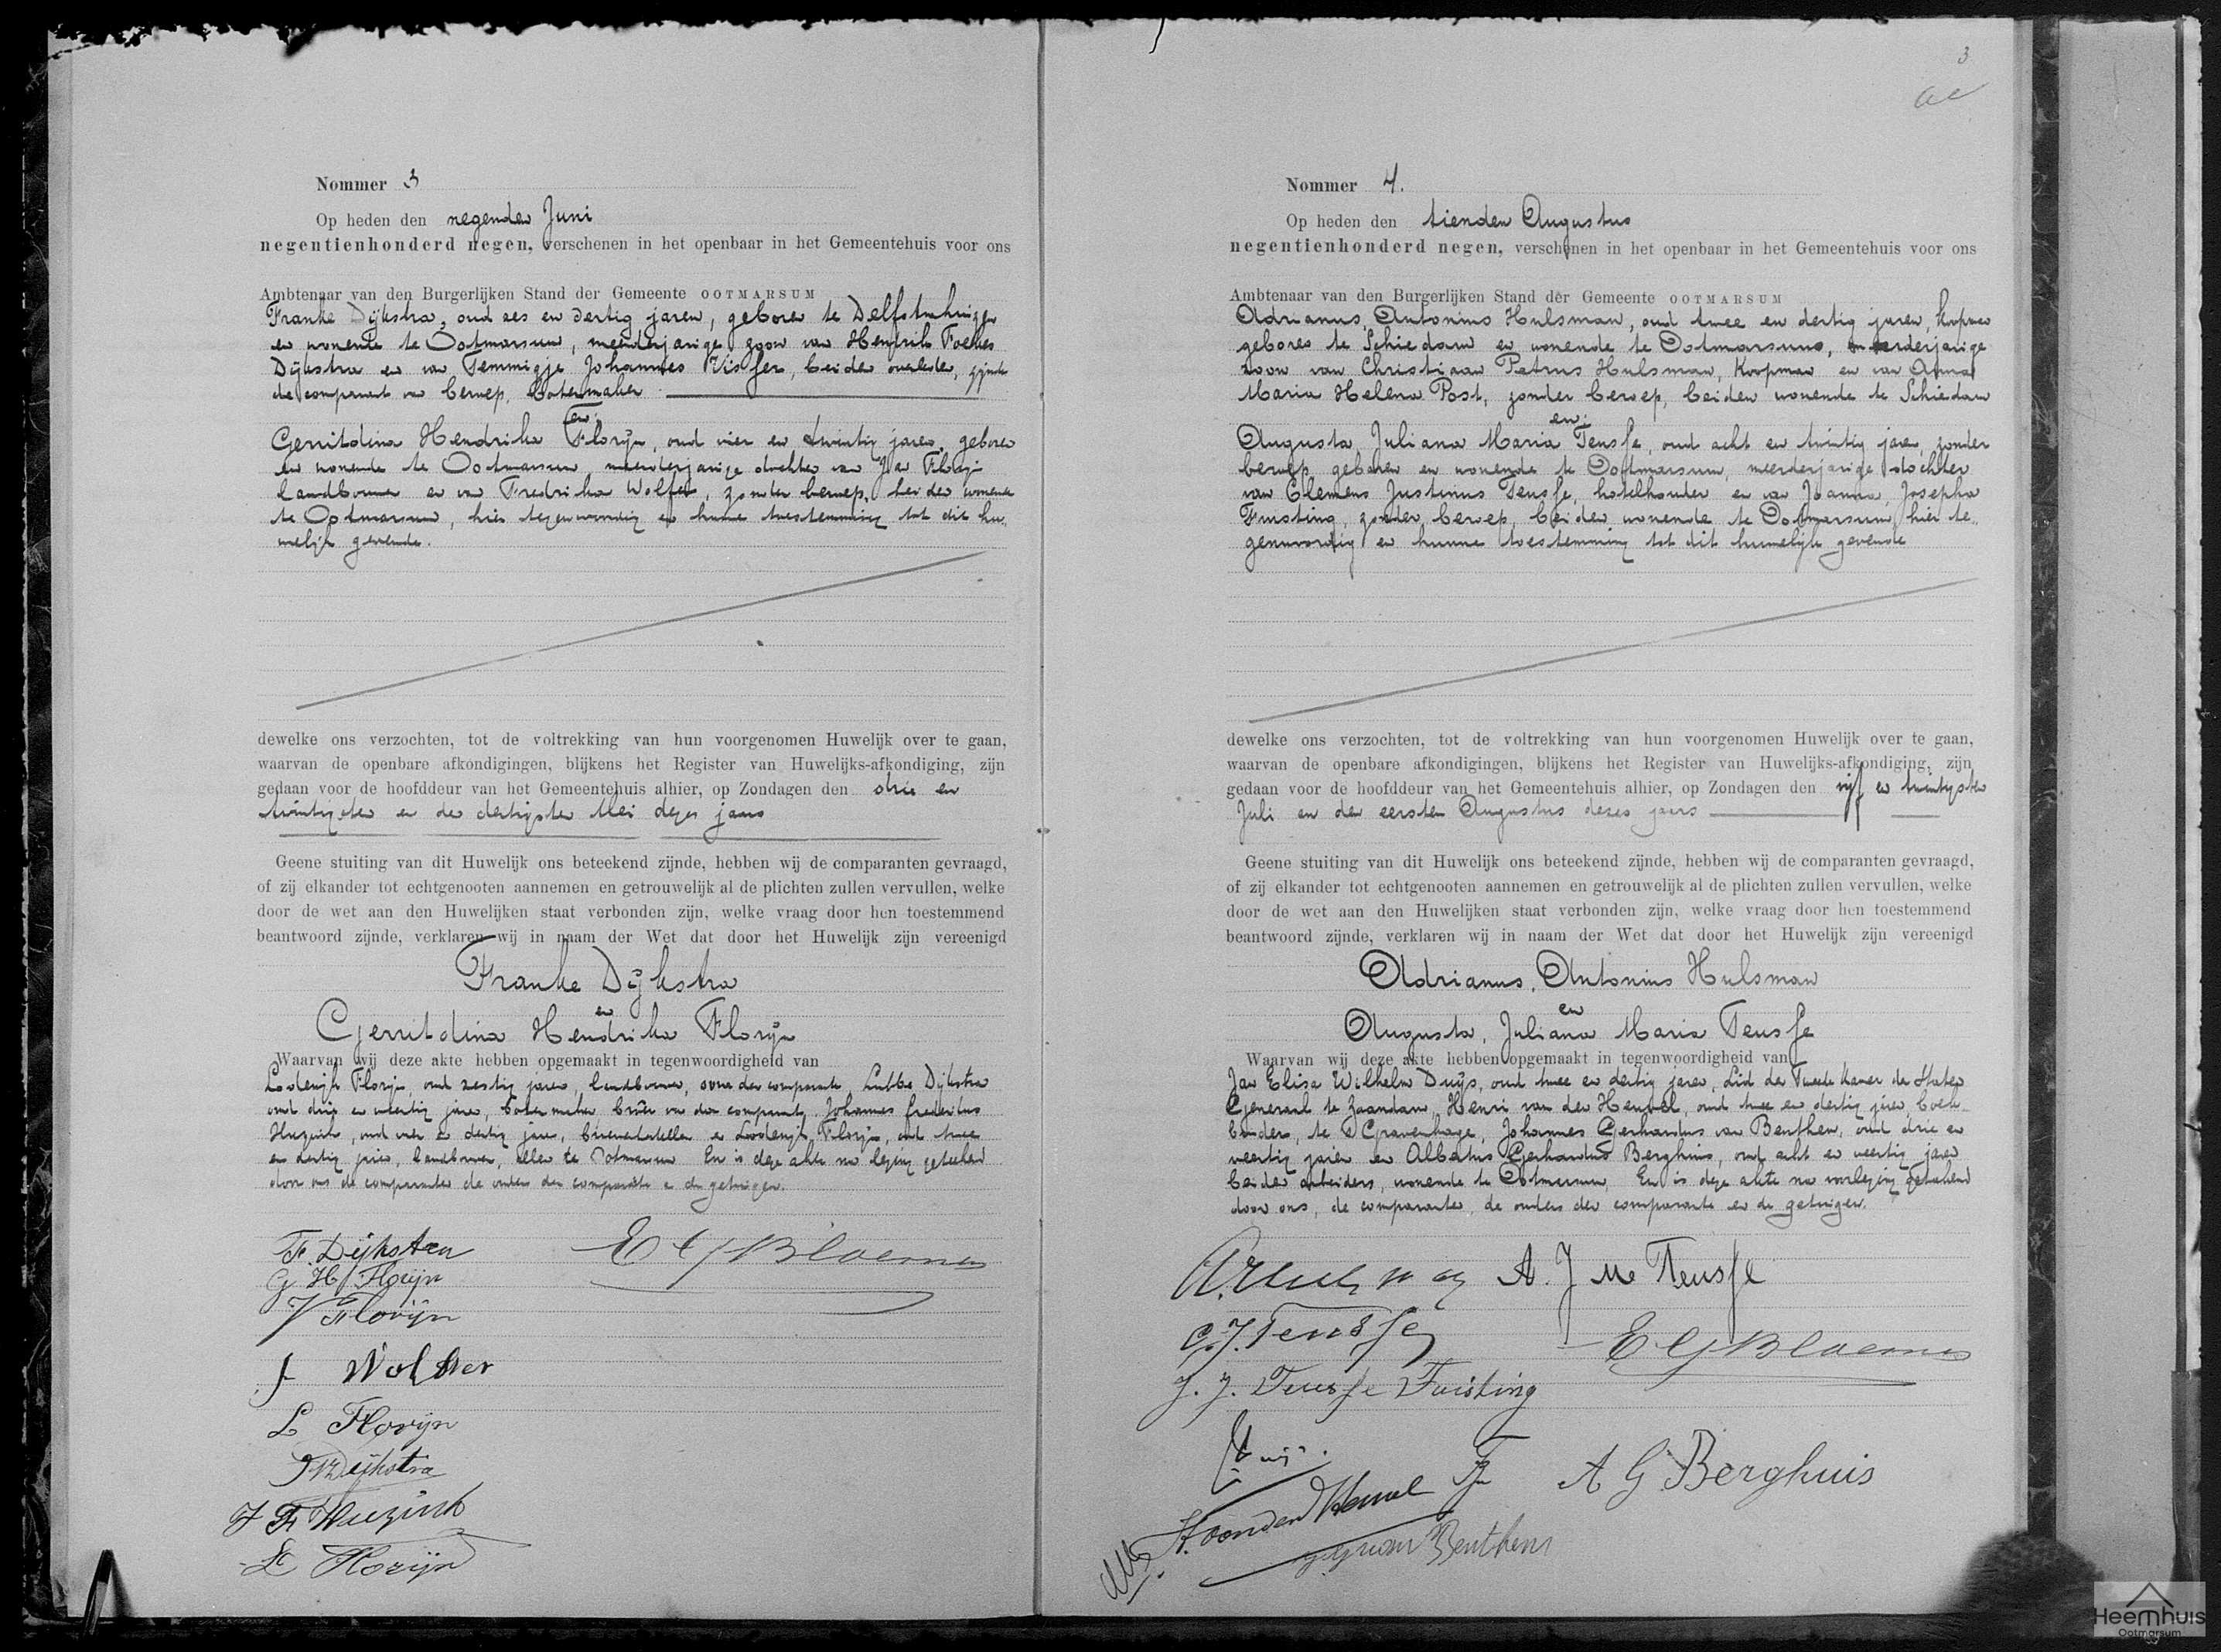 Nommer 3
Op heden den negenden Juni
negentienhonderd negen, verschenen in het openbaar in het Gemeentehuis voor ons
Ambtenaar van den Burgerlijken Stand der Gemeente OOTMARSUM
Franke Dijkstra, oud zes en dertig jaren, geboren te Delfstrahuizen
en wonende te Ootmarsum, meerderjarige zoon van Hendrik Foekes
Dijkstra en van Temmigje Johannes Visser, beiden overleden, zijnde
de comparant van beroep, botermaker
en:
Gerritdina Hendrika Florijn, oud vier en twintig jaren, geboren
en wonende te Ootmarsum, meerderjarige dochter van Jan Florijn
landbouwer en van Fredrika Wolfer, zonder beroep, beiden wonende
te Ootmarsum, hier tegenwoordig en hunne toestemming tot dit hu
welijk gevende.
dewelke ons verzochten, tot de voltrekking van hun voorgenomen Huwelijk over te gaan,
waarvan de openbare afkondigingen, blijkens het Register van Huwelijks-afkondiging, zijn
gedaan voor de hoofddeur van het Gemeentehuis alhier, op Zondagen den drie en
twintigsten en den dertigsten Mei dezes jaars
Geene stuiting van dit Huwelijk ons beteekend zijnde, hebben wij de comparanten gevraagd,
of zij elkander tot echtgenooten aannemen en getrouwelijk al de plichten zullen vervullen, welke
door de wet aan den Huwelijken staat verbonden zijn, welke vraag door hen toestemmend
beantwoord zijnde, verklaren wij in naam der Wet dat door het Huwelijk zijn vereenigd
Franke Dijkstra
en
Gerritdina Hendrika Florijn
Waarvan wij deze akte hebben opgemaakt in tegenwoordigheid van
Lodewijk Florijn, oud zestig jaren, landbouwer, oom der comparante, Lubbe Dijkstra
oud drie en veertig jaren, botermaker broer van den comparant, Johannes Frederikus
Huzink, oud vier en dertig jaren, brievenbesteller en Lodewijk Florijn, oud twee
en dertig jaren, landbouwer, allen te Ootmarsum En is deze akte na lezing geteekend
door ons de comparanten de ouders der comparante en de getuigen.
F. Dijkstra
E G Bloemen
G H Florijn
J Florijn
f Wolfer
L Florijn
Dijkstra
J F Huzink
L Florijn
3
Nommer 4.
Op heden den tienden Augustus
negentienhonderd negen, verschenen in het openbaar in het Gemeentehuis voor ons
Ambtenaar van den Burgerlijken Stand der Gemeente OOTMARSUM
Adrianus, Antonius Hulsman, oud twee en dertig jaren, koopman
geboren te Schiedam en wonende te Ootmarsum, meerderjarige
zoon van Christiaan Petrus Hulsman, koopman en van Anna
Maria Helena Post, zonder beroep, beiden wonende te Schiedam
en:
Augusta, Juliana Maria Teussе, oud acht en twintig jaren, zonder
beroep, geboren en wonende te Ootmarsum, meerderjarige dochter
van Clemens Justinus Teusse, hotelhouder en van Joanna, Josepha
Fuisting, zonder beroep, beiden wonende te Ootmarsum, hier te
genwoordig en hunne toestemming tot dit huwelijk gevende
dewelke ons verzochten, tot de voltrekking van hun voorgenomen Huwelijk over te gaan,
waarvan de openbare afkondigingen, blijkens het Register van Huwelijks-afkondiging, zijn
gedaan voor de hoofddeur van het Gemeentehuis alhier, op Zondagen den vijf en twintigsten
Juli en den eersten Augustus dezes jaars
Geene stuiting van dit Huwelijk ons beteekend zijnde, hebben wij de comparanten gevraagd,
of zij elkander tot echtgenooten aannemen en getrouwelijk al de plichten zullen vervullen, welke
door de wet aan den Huwelijken staat verbonden zijn, welke vraag door hen toestemmend
beantwoord zijnde, verklaren wij in naam der Wet dat door het Huwelijk zijn vereenigd
Adrianus, Antonius Hulsman
en
Augusta, Juliana Maria Teusse
Waarvan wij deze akte hebben opgemaakt in tegenwoordigheid van
Jan Elisa Wilhelm Duijs, oud twee en dertig jaren, Lid der Tweede Kamer der Staten
Generaal te Zaandam, Henri van den Heuvel, oud twee en dertig jaren, boek
binder, te 's Gravenhage, Johannes Gerhardus van Benthem, oud drie en
veertig jaren en Albertus Gerhardus Berghuis, oud acht en veertig jaren
beiden arbeiders, wonende te Ootmarsum, En is deze akte na voorlezing geteekend
door ons, de comparanten, de ouders der comparante en de getuigen.
A. J M Teusse
C. J. Teusse
E G Bloemen
J. J. Teusse Fuisting
Duijs
A G Berghuis
H. van den Heuvel
J G van Benthem
Heemhuis
Ootmarsum